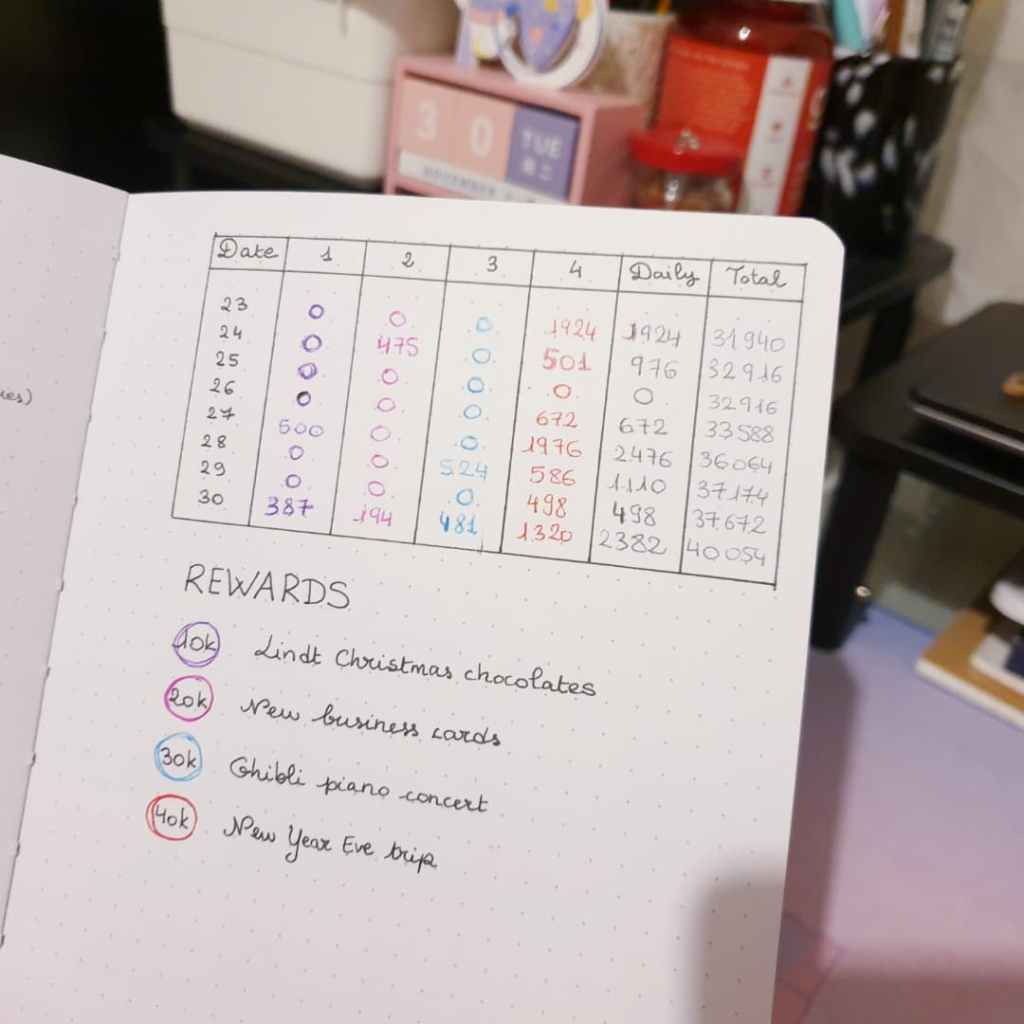 3 0 TUE
NOVEMBER
Date 1 2 3 4 Daily Total
23 0 0 0 1924 1924 31940
24 0 475 0 501 976 32916
25 0 0 0 0 0 32916
26 0 0 0 672 672 33588
27 500 0 0 1976 2476 36064
28 0 0 524 586 1110 37174
29 0 0 0 498 498 37672
30 387 194 481 1320 2382 40054
REWARDS
10k Lindt Christmas chocolates
20k New business cards
30k Ghibli piano concert
40k New Year Eve trip